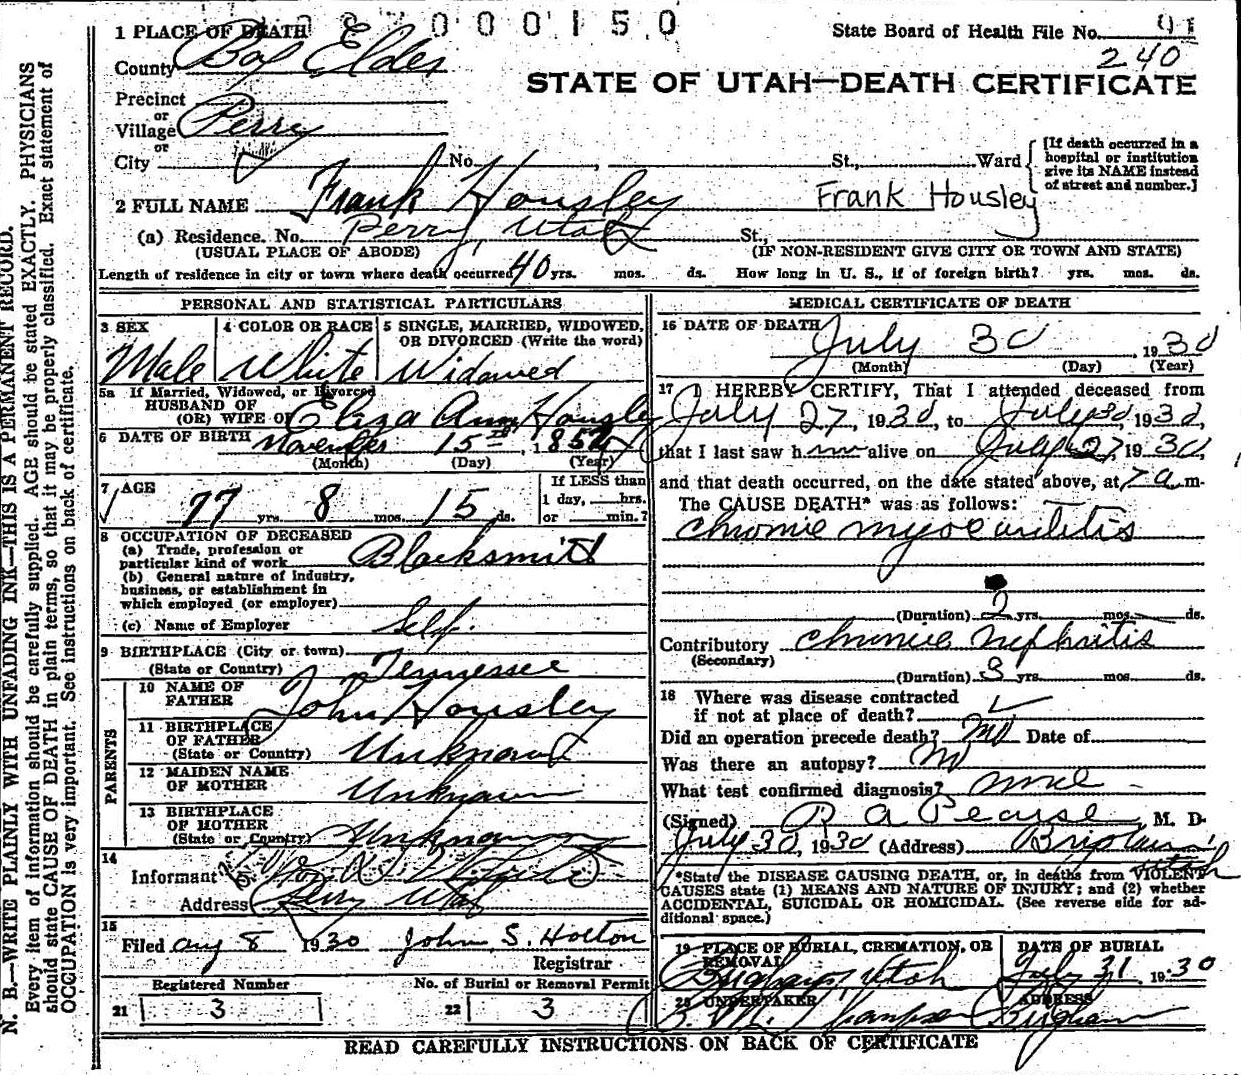 000150
1 PLACE OF DEATH
State Board of Health File No. 91
240
County Box Elder
STATE OF UTAH—DEATH CERTIFICATE
Precinct
or
Village Perry
or
City No. , St., Ward
[If death occurred in a hospital or institution give its NAME instead of street and number.]
2 FULL NAME Frank Housley Frank Housley
(a) Residence. No. Perry, Utah St.,
(USUAL PLACE OF ABODE) (IF NON-RESIDENT GIVE CITY OR TOWN AND STATE)
Length of residence in city or town where death occurred 40 yrs. mos. ds. How long in U. S., if of foreign birth? yrs. mos. ds.
PERSONAL AND STATISTICAL PARTICULARS
3 SEX
Male
4 COLOR OR RACE
White
5 SINGLE, MARRIED, WIDOWED, OR DIVORCED (Write the word)
Widowed
5a If Married, Widowed, or Divorced
HUSBAND OF
(OR) WIFE OF Eliza Ann Housley
6 DATE OF BIRTH November 15th, 1852
(Month) (Day) (Year)
7 AGE
77 yrs. 8 mos. 15 ds.
If LESS than
1 day, hrs.
or min.?
8 OCCUPATION OF DECEASED
(a) Trade, profession or
particular kind of work Blacksmith
(b) General nature of industry,
business, or establishment in
which employed (or employer)
(c) Name of Employer Self.
9 BIRTHPLACE (City or town)
(State or Country) Tennessee
PARENTS
10 NAME OF
FATHER John Housley
11 BIRTHPLACE
OF FATHER
(State or Country) Unknown
12 MAIDEN NAME
OF MOTHER Unknown
13 BIRTHPLACE
OF MOTHER
(State or Country) Unknown
14
Informant
Address Perry Utah
15
Filed Aug 8 1930 John S. Holton
Registrar
Registered Number
21 3
No. of Burial or Removal Permit
22 3
MEDICAL CERTIFICATE OF DEATH
16 DATE OF DEATH
July 30, 1930
(Month) (Day) (Year)
17 I HEREBY CERTIFY, That I attended deceased from
July 27, 1930, to July 30, 1930,
that I last saw him alive on July 27, 1930,
and that death occurred, on the date stated above, at 7 a m-
The CAUSE DEATH* was as follows:
Chronic myocarditis
(Duration) 2 yrs. mos. ds.
Contributory Chronic Nephritis
(Secondary)
(Duration) 3 yrs. mos. ds.
18 Where was disease contracted
if not at place of death?
Did an operation precede death? No Date of
Was there an autopsy? No
What test confirmed diagnosis? none
(Signed) R A Pearse, M. D-
July 30, 1930 (Address) Brigham, Utah
*State the DISEASE CAUSING DEATH, or, in deaths from VIOLENT
CAUSES state (1) MEANS AND NATURE OF INJURY; and (2) whether
ACCIDENTAL, SUICIDAL OR HOMICIDAL. (See reverse side for ad-
ditional space.)
19 PLACE OF BURIAL, CREMATION, OR
REMOVAL
Brigham, Utah
DATE OF BURIAL
July 31 1930
20 UNDERTAKER
ADDRESS
Brigham
READ CAREFULLY INSTRUCTIONS ON BACK OF CERTIFICATE
N. B.—WRITE PLAINLY WITH UNFADING INK—THIS IS A PERMANENT RECORD.
Every item of information should be carefully supplied. AGE should be stated EXACTLY. PHYSICIANS
should state CAUSE OF DEATH in plain terms, so that it may be properly classified. Exact statement of
OCCUPATION is very important. See instructions on back of certificate.